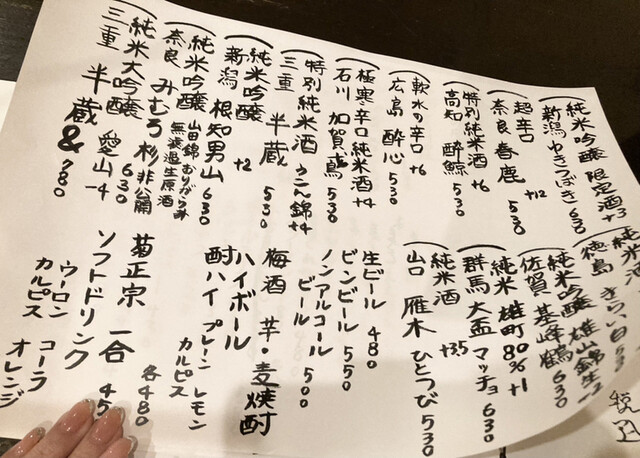 純米吟醸 限定酒 +3
新潟 ゆきつばき 630
超辛口 +12
奈良 春鹿 530
特別純米酒 +6
高知 酔鯨 530
軟水の辛口 +6
広島 酔心 530
極寒・辛口純米酒 +4
石川 加賀鳶 530
特別純米酒 うこん錦 +4
三重 半蔵 530
純米吟醸 +2
新潟 根知男山 630
純米吟醸 山田錦おりがらみ 無濾過生原酒
奈良 みむろ杉 非公開 630
純米大吟醸 愛山 -4
三重 半蔵& 780
純米酒
徳島 きらい 530
純米吟醸 雄山錦生 -2
佐賀 基峰鶴 630
純米 雄町80% +1
群馬 大盃 マッチョ 630
純米酒 +3.5
山口 雁木 ひとつび 530
生ビール 480
ビンビール 550
ノンアルコール
ビール 500
梅酒 芋・麦焼酎
ハイボール
酎ハイ プレーン レモン
カルピス
各480
菊正宗 一合 45
ソフトドリンク
ウーロン コーラ
カルピス オレンジ
税込